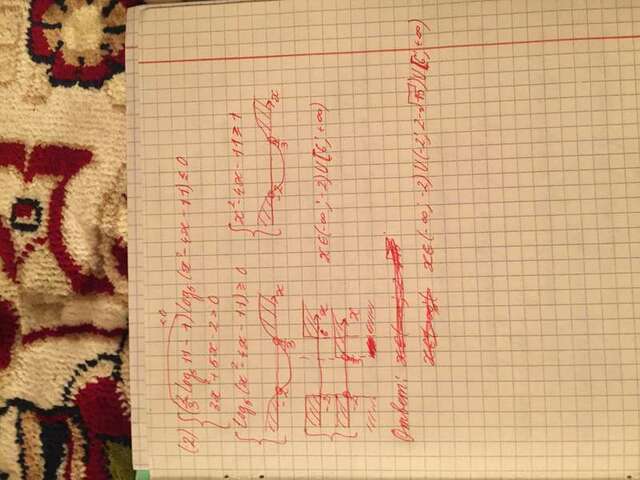 <0
(2) { (2/3 log₅ 11 - 1) log₅ (x² - 4x - 11) ≤ 0
3x² + 5x - 2 > 0
{ log₅ (x² - 4x - 11) ≥ 0 { x² - 4x - 11 ≥ 1
-2 3 x -2 3 x
-2 6 x x ∈ (-∞; -2) ∪ [6; +∞)
-2 3 x
Ответ:
x ∈ (-∞; -2) ∪ (-2; 2-√15) ∪ [6; +∞)